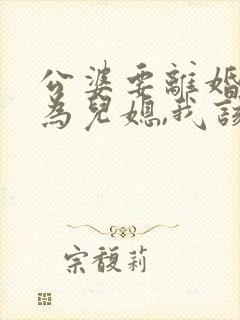 公婆要離婚
為兒媳,我該
宗馥莉